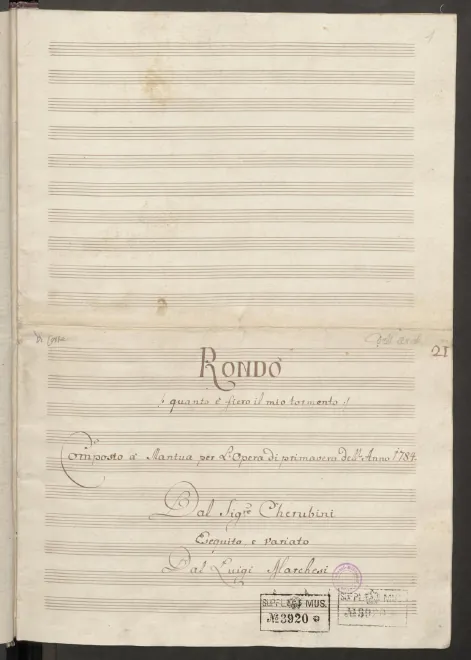 21
RONDÒ
quanto è fiero il mio tormento
Composto a Mantua per L'Opera di primavera dell'Anno 1784
Dal Sigre Cherubini
Eseguito e variato
Dal Luigi Marchesi
SUPPL. MUS.
№ 3920
SUPPL. MUS.
№ 3920